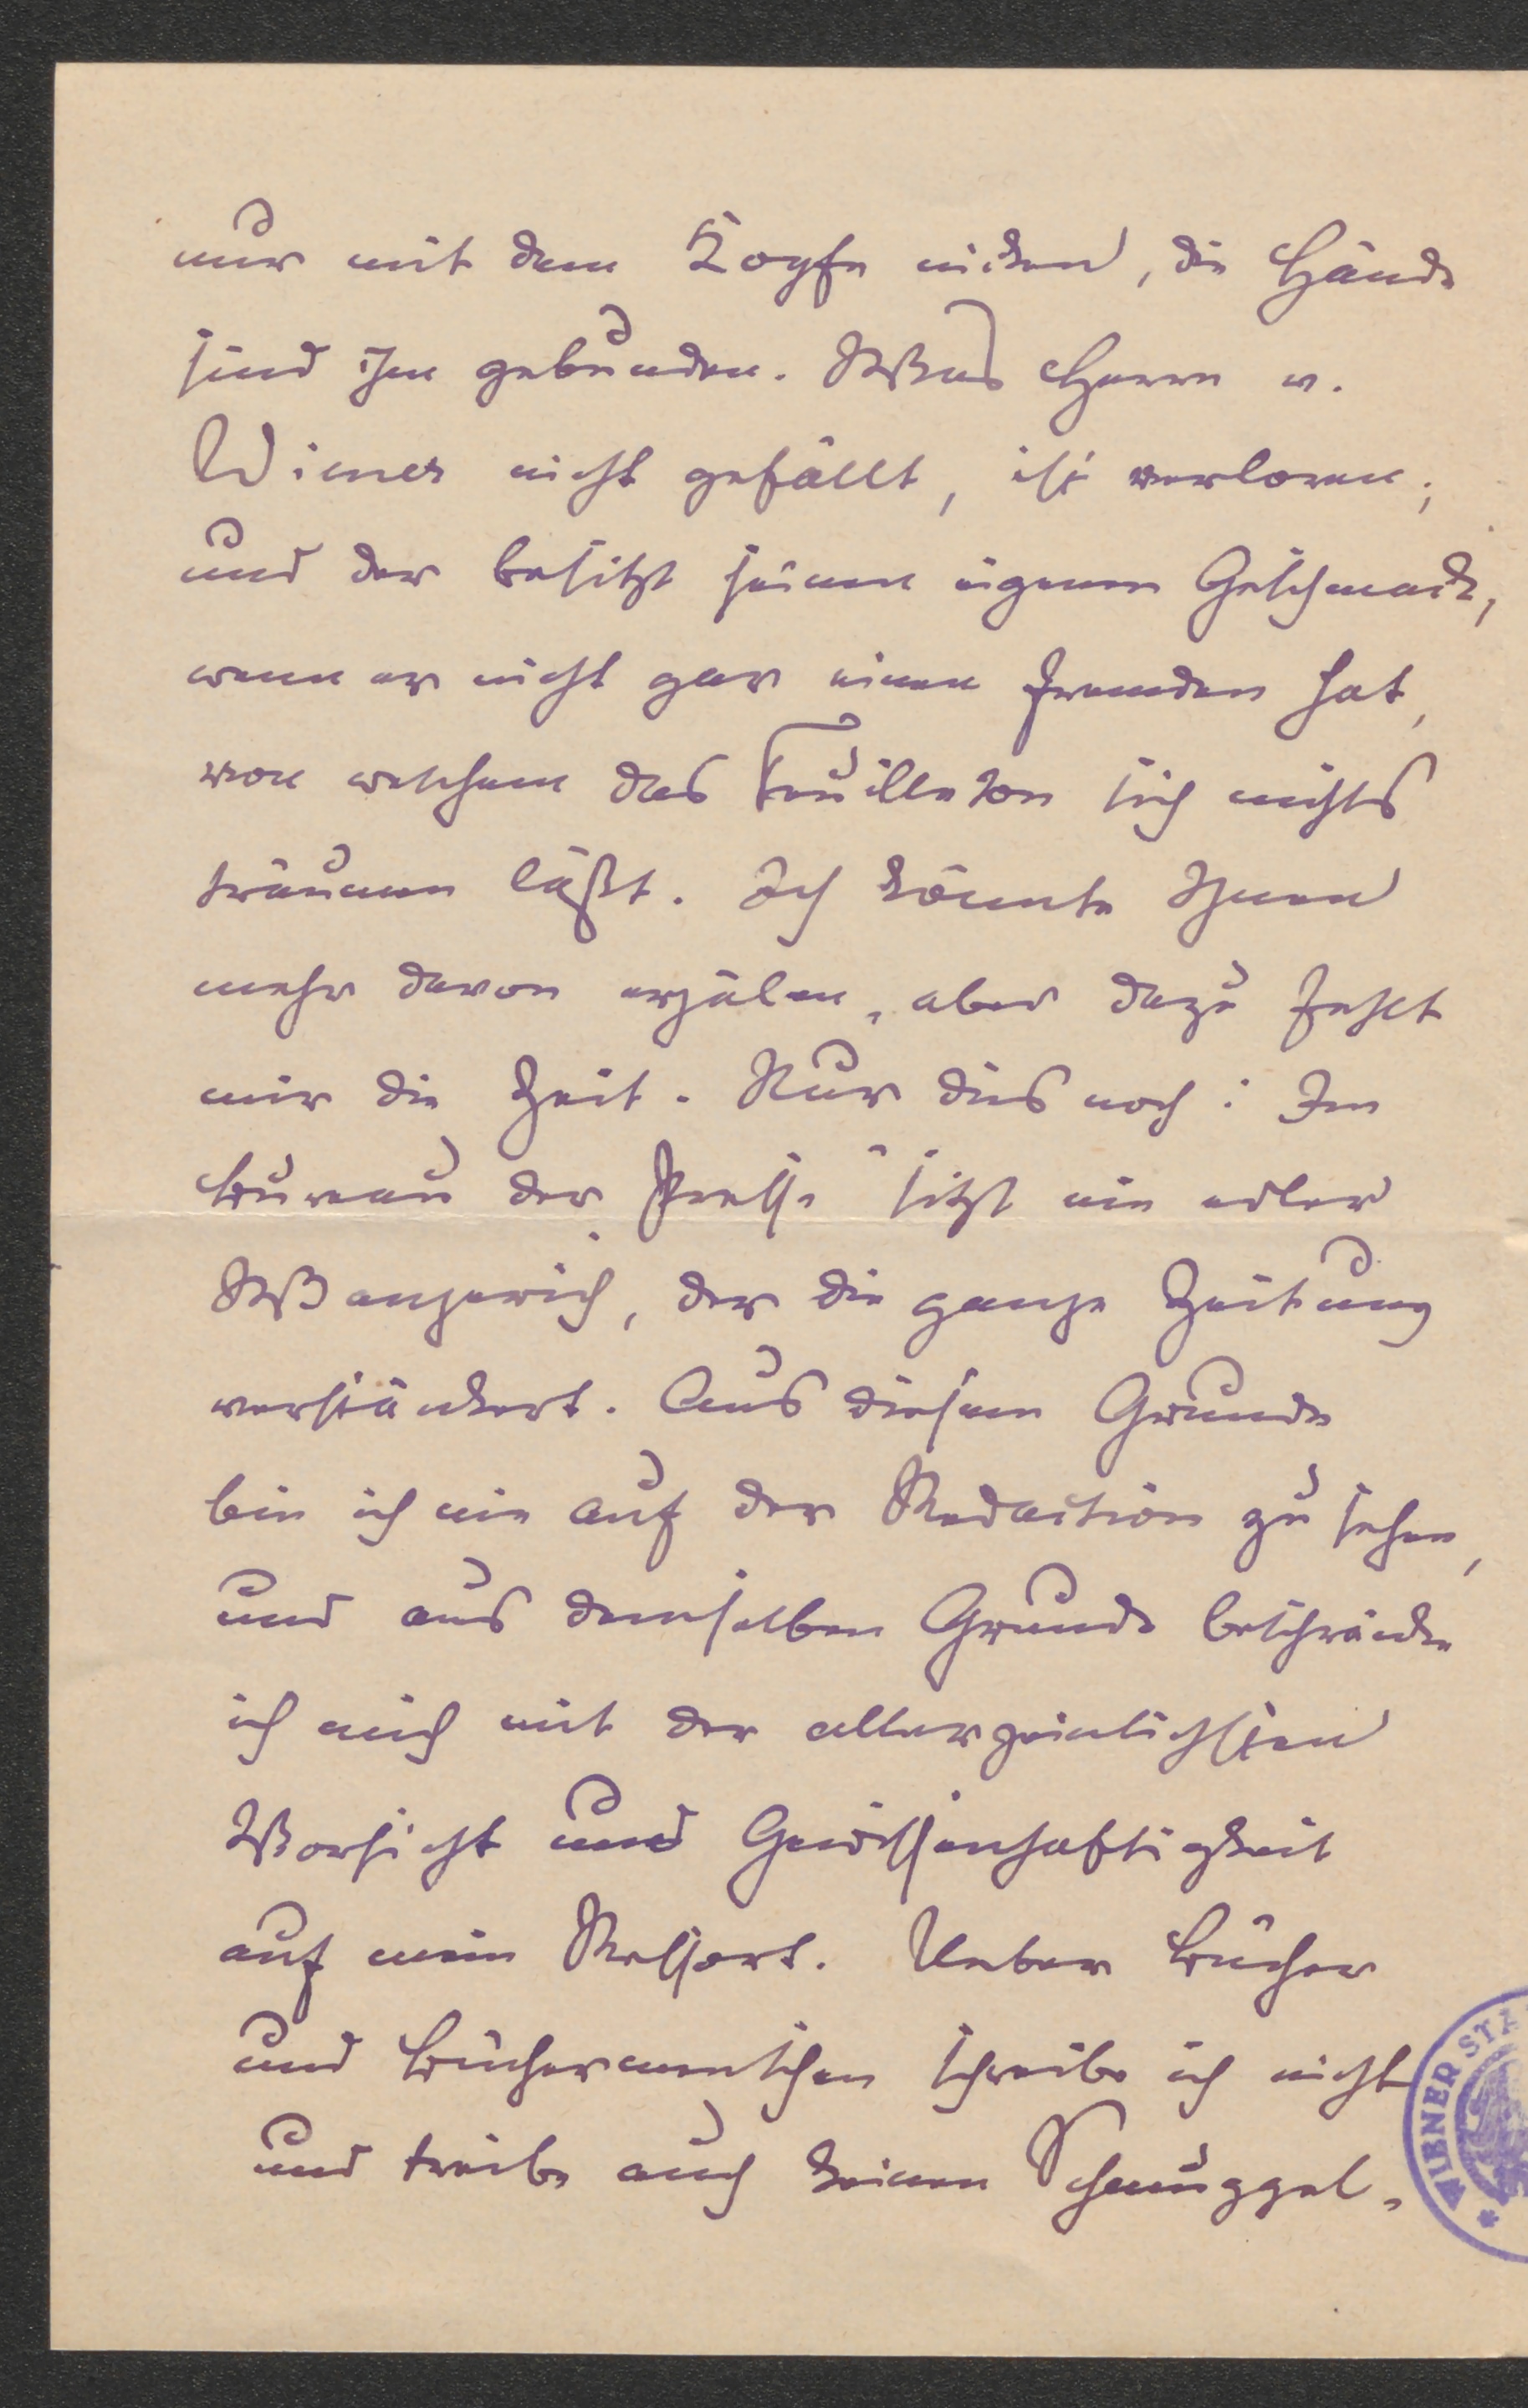 nur mit dem Kopfe nicken, die Hände
sind ihm gebunden. Was Herrn v.
Wiener nicht gefällt, ist verloren;
und der besitzt seinen eigenen Geschmack,
wenn er nicht gar einen fremden hat,
von welchem das Feuilleton sich nichts
träumen läßt. Ich könnte Ihnen
mehr davon erzälen, aber dazu fehlt
mir die Zeit. Nur dies noch: Im
Bureau der „Presse“ sitzt ein edler
Wanzerich, der die ganze Zeitung
verstänkert. Aus diesem Grunde
bin ich nie auf der Redaction zu sehen,
und aus demselben Grunde beschränke
ich mich mit der allerpeinlichsten
Vorsicht und Gewissenhaftigkeit
auf mein Ressort. Ueber Bücher
und Büchermenschen schreibe ich nicht
und treibe auch keinen Schmuggel.
WIENER STA